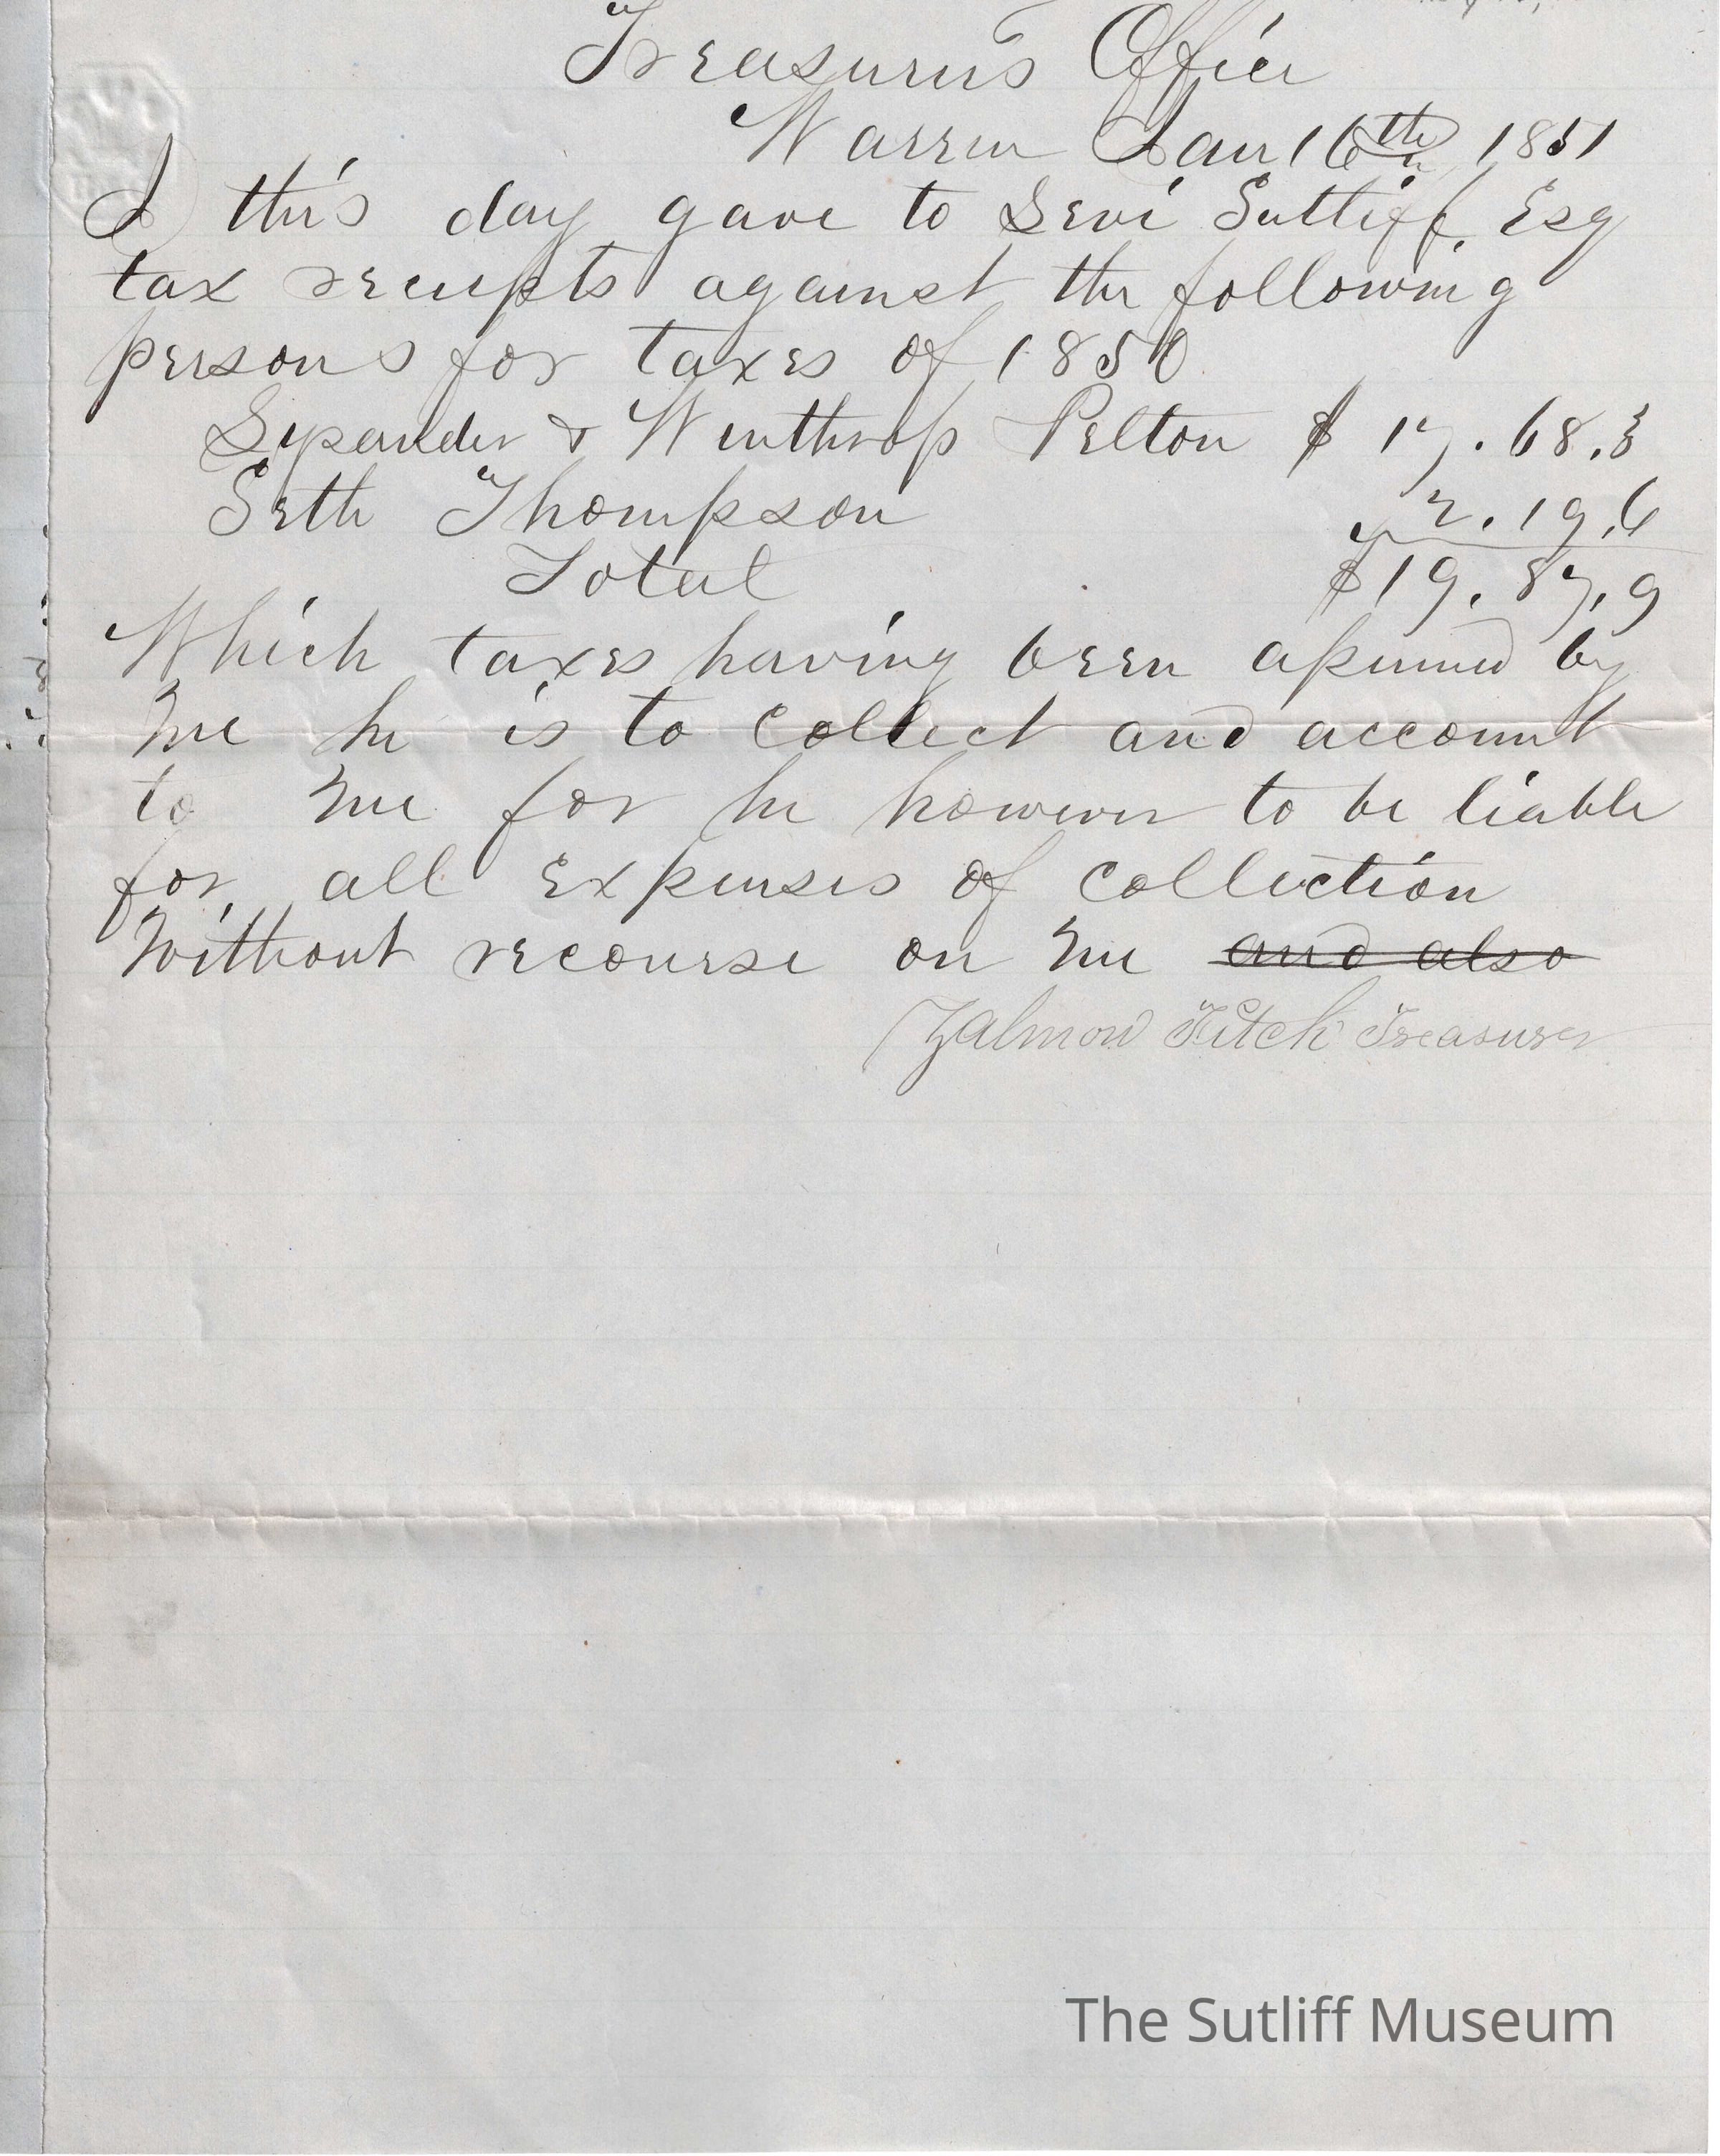 Treasurers Office
Warren Jan 16th 1851
I this day gave to Levi Sutliff, Esq
tax receipts against the following
persons for taxes of 1850
Lysander & Winthrop Pelton $ 17.68.3
Seth Thompson 2.19,6
Total $19.87,9
Which taxes having been assumed by
me he is to collect and account
to me for he however to be liable
for all expenses of collection
without recourse on me and also
Zalmon Fitch Treasurer
The Sutliff Museum